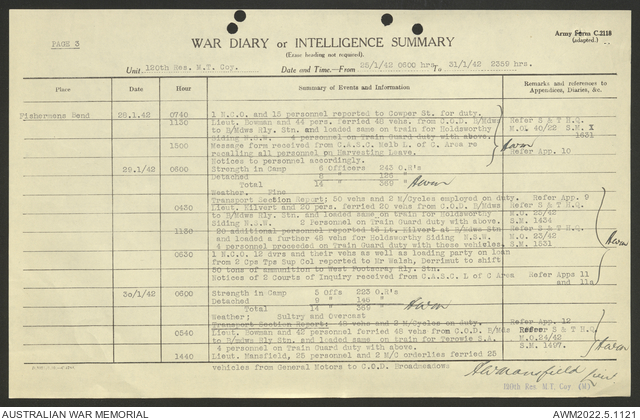 PAGE 3
WAR DIARY or INTELLIGENCE SUMMARY
(Erase heading not required).
Army Form C.2118
(adapted.)
Unit 120th Res. M.T. Coy.
Date and Time.—From 25/1/42 0600 hrs. To 31/1/42 2359 hrs.
Place Date Hour Summary of Events and Information Remarks and references to Appendices, Diaries, &c.
Fishermans Bend 28.1.42 0740 1 N.C.O. and 15 personnel reported to Cowper St. for duty.
1130 Lieut. Bowman and 44 pers. ferried 48 vehs. from C.O.D. B/Mdws Refer S & T H.Q.
to B/Mdws Rly. Stn. and loaded same on train for Holdsworthy M.O. 40/22 S.M.
Siding N.S.W. 4 personnel on Train Guard duty with above. 1631
1500 Message form received from C.A.S.C. Melb L. of C. Area re Refer App. 10
recalling all personnel on Harvesting Leave.
Notices to personnel accordingly.
29.1.42 0600 Strength in Camp 6 Officers 243 O.R's
Detached 8 " 126 "
Total 14 " 369 "
Weather. Fine
Transport Section Report: 50 vehs and 2 M/Cycles employed on duty. Refer App. 9
0430 Lieut. Kilvert and 20 pers. ferried 20 vehs from C.O.D. B/Mdws Refer S & T H.Q.
to B/Mdws Rly. Stn. and loaded same on train for Holdsworthy M.O. 25/42
Siding N.S.W. 2 Personnel on Train Guard duty with above. S.M. 1434
1130 20 additional personnel reported to Lt. Kilvert at B/Mdws Stn Refer S & T H.Q.
and loaded a further 48 vehs for Holdsworthy Siding N.S.W. M.O. 23/42
4 personnel proceeded on Train Guard duty with these vehicles. S.M. 1531
0630 1 N.C.O. 12 dvrs and their vehs as well as loading party on loan
from 2 Cps Tps Sup Col reported to Mr Walsh, Derrimut to shift
50 tons of ammunition to West Footscray Rly. Stn.
Notices of 2 Courts of Inquiry received from C.A.S.C. L of C Area Refer Apps 11
and 11a
30/1/42 0600 Strength in Camp 5 Offs 223 O.R's
Detached 9 " 146 "
Total 14 " 369 "
Weather; Sultry and Overcast
Transport Section Report: 48 vehs and 2 M/Cycles on duty. Refer App. 12
0540 Lieut. Bowman and 42 personnel ferried 48 vehs from C.O.D. B/Mds Refer S & T H.Q.
to B/mdws Rly. Stn. and loaded same on train for Terowie S.A. M.O.24/42
4 personnel on Train Guard duty with above. S.M. 1497.
1440 Lieut. Mansfield, 25 personnel and 2 M/C orderlies ferried 25
vehicles from General Motors to C.O.D. Broadmeadows
120th Res. M.T. Coy. (M)
AUSTRALIAN WAR MEMORIAL
AWM2022.5.1121